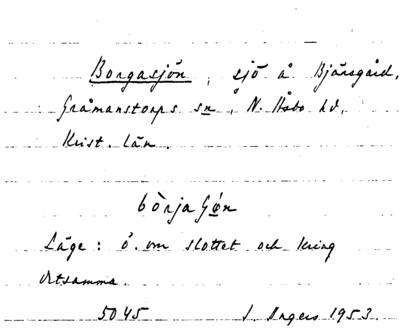 Borgasjön, sjö å Bjärsgård,
Gråmanstorps sn, N. Åsbo hd,
Krist. län.
bòrjaʃø̀n
Läge: ö. om slottet och kring
detsamma.
5045 S. Ingers 1953.